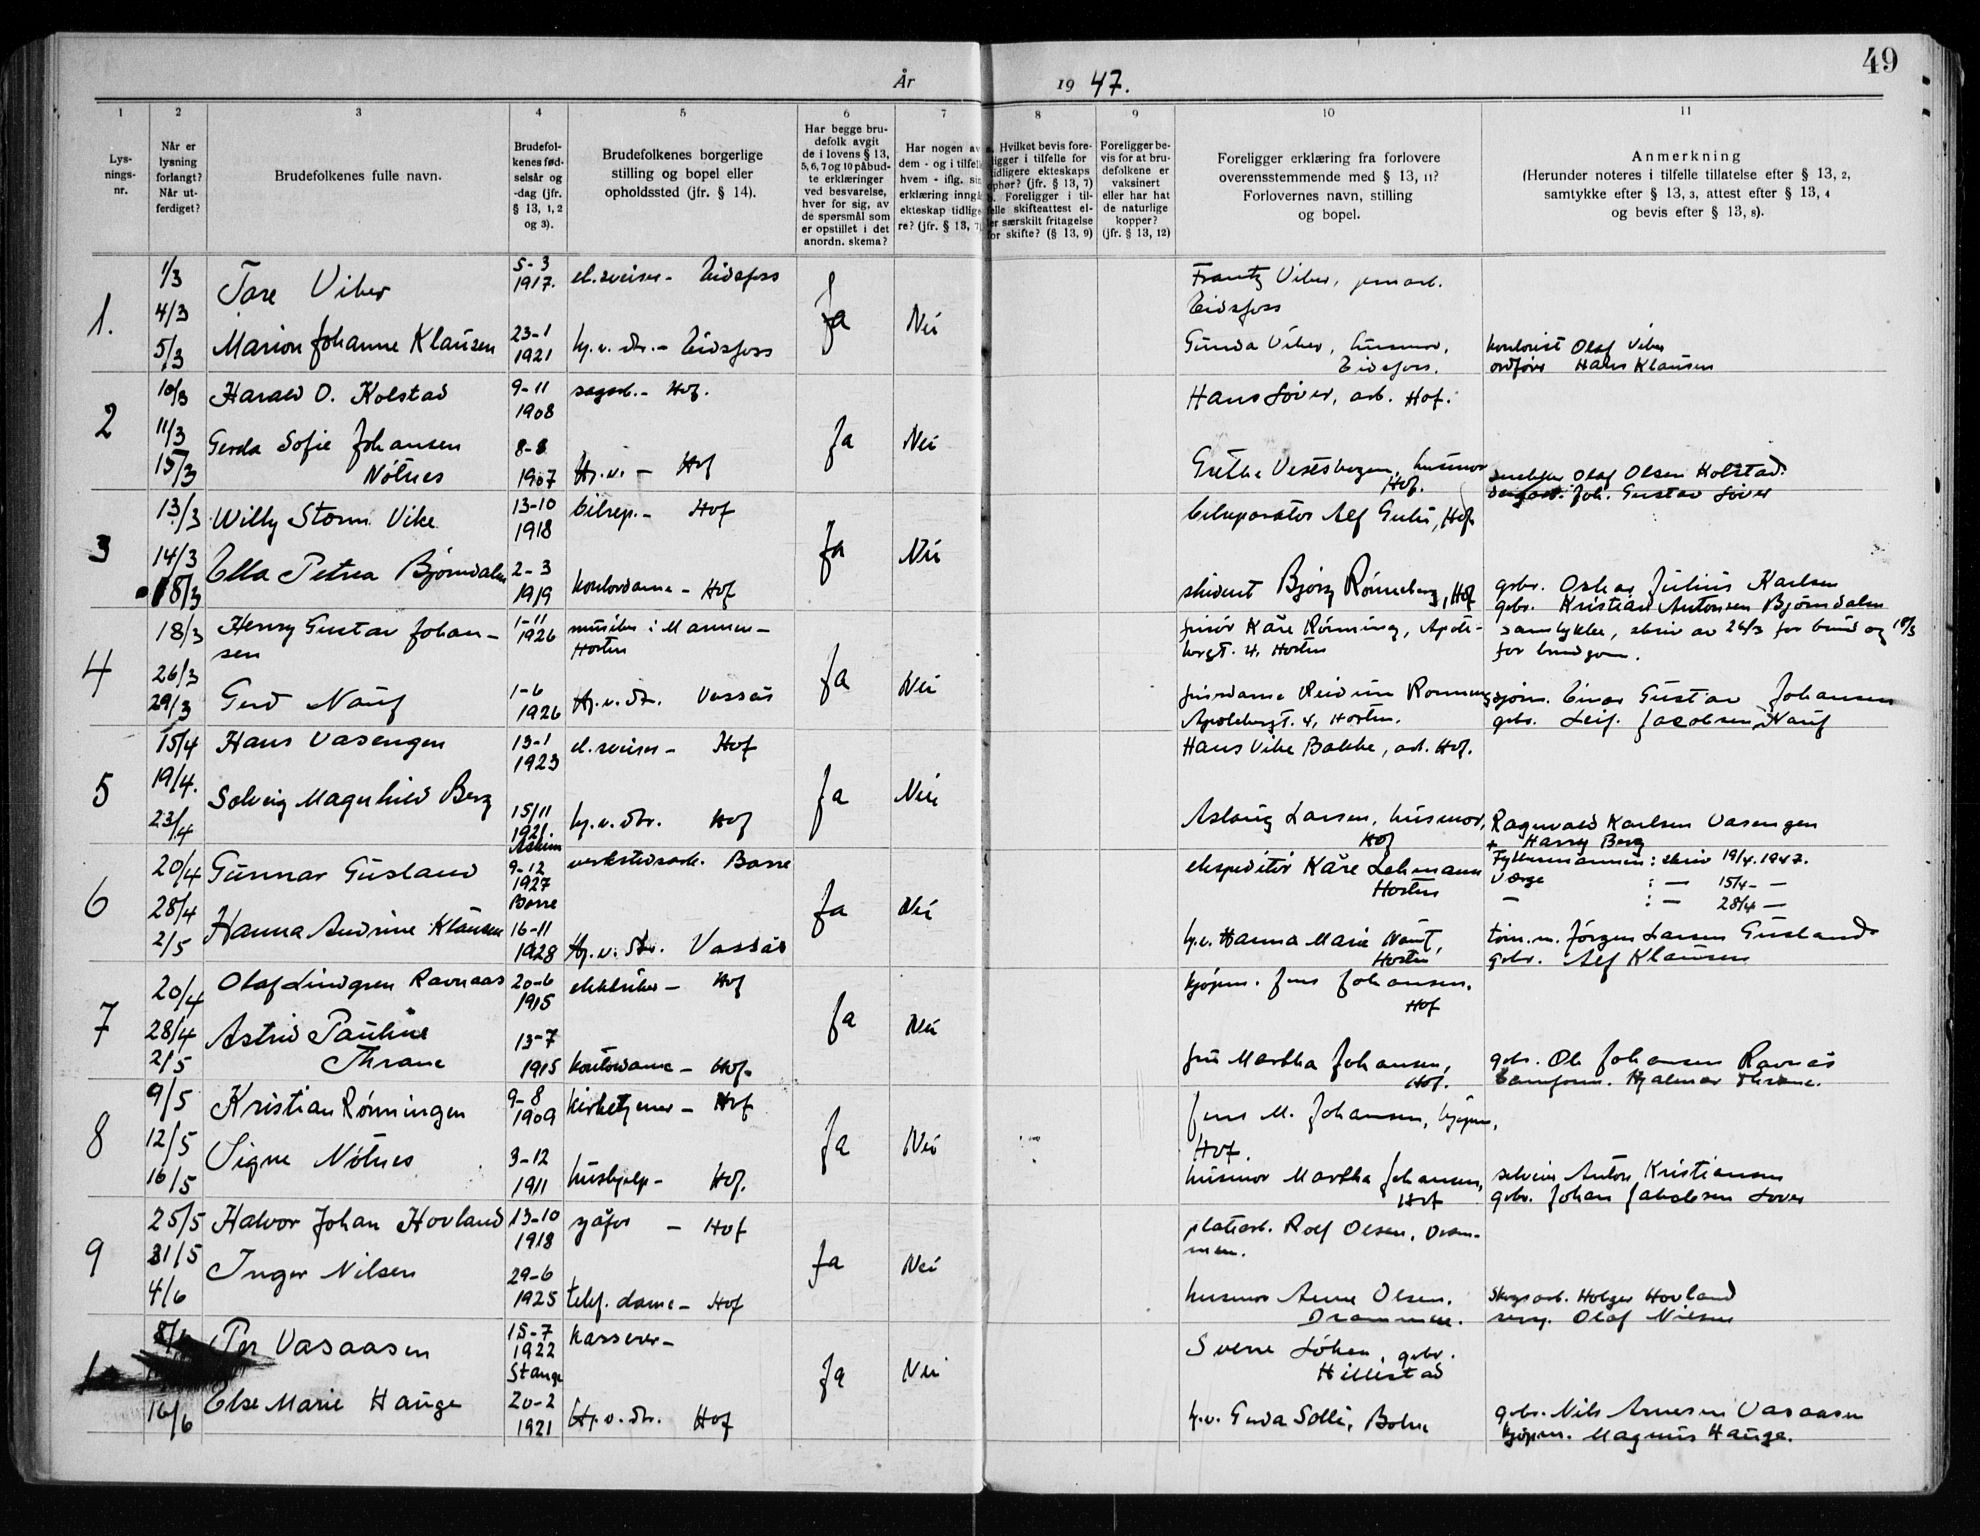 49
År 1947.
1
2
3
4
5
6
7
8
9
10
11
Lys-
nings-
nr.
Når er
lysning
forlangt?
Når ut-
ferdiget?
Brudefolkenes fulle navn.
Brudefol-
kenes fød-
selsår og
-dag (jfr.
§ 13, 1, 2
og 3).
Brudefolkenes borgerlige
stilling og bopel eller
opholdssted (jfr. § 14).
Har begge bru-
defolk avgit
de i lovens § 13,
5, 6, 7 og 10 påbud-
te erklæringer
ved besvarelse,
hver for sig, av
de spørsmål som
er opstillet i det
anordn. skema?
Har nogen av
dem - og i tilfelle
hvem - iflg. sin
erklæring inngå
ekteskap tidlige
re? (jfr. § 13, 7)
a. Hvilket bevis fore-
ligger i tilfelle for
tidligere ekteskaps
ophør? (jfr. § 13, 7)
b. Foreligger i til-
felle skifteattest el-
ler særskilt fritagelse
for skifte? (§ 13, 9)
Foreligger be-
vis for at bru-
defolkene er
vaksinert
eller har hat
de naturlige
kopper?
(jfr. § 13, 12)
Foreligger erklæring fra forlovere
overensstemmende med § 13, 11?
Forlovernes navn, stilling
og bopel.
Anmerkning
(Herunder noteres i tilfelle tillatelse efter § 13, 2,
samtykke efter § 13, 3, attest efter § 13, 4
og bevis efter § 13, 8).
1.
1/3
4/3
5/3
Tore Viber
5-3
1917.
el.sveiser - Eidsfoss
Marion Johanne Klausen
23-1
1921
hj.v. dtr. - Eidsfoss
Ja
Nei
Frantz Viber, jernarb.
Eidsfoss
Gunda Viber, husmor,
Eidsfoss.
kontorist Olaf Viber
ordfører Hans Klausen
2
10/3
11/3
15/3
Harald O. Kolstad
9-11
1908
sagarb. - Hof.
Gerda Sofie Johansen
Nøtnes
8-8
1907
Hj.v. - Hof
Ja
Nei
Hans Løver, arb. Hof.
Grethe husmor
Hof.
snekker Olaf Olsen Kolstad.
Joh. Gustav Løver
3
13/3
14/3
18/3
Willy Storm Vike
13-10
1918
bilrep. - Hof
Ella Petrea Bjørndalen
2-3
1919
kontordame - Hof
Ja
Nei
bilreparatør Alf Hof
student Bjørg Rønneberg, Hof
gbr. Oskar Julius Karlsen
gbr. Kristian Antonsen Bjørndalen
4
18/3
26/3
29/3
Henry Gustav Johan-
sen
1-11
1926
musiker i Marinen -
Horten
Gerd Nauf
1-6
1926
Hj.v. dtr. Vassås
Ja
Nei
frisør Kåre Rønning, Apote-
kergt. 4, Horten
frisørdame Reidun Rønning
Apotekergt. 4, Horten.
samtykke, skriv av 26/3 for brud og 18/3
for brudgom.
sjøm. Einar Gustav Johansen
gbr. Leif Jacobsen Nauf
5
15/4
19/4.
23/4
Hans Vasengen
13-1
1923
el. sveiser - Hof
Solveig Magnhild Berg
15/11
1921.
hj.v. dtr. Hof
Ja
Nei
Hans Vike Bakke, arb. Hof.
Aslaug Larsen, husmor,
Hof
Ragnvald Karlsen Vasengen
+ Harry Berg
6
20/4
28/4
2/5
Gunnar Gusland
Askim
9-12
1927
Borre
verkstedsarb. Borre
Hanna Andrine Klausen
16-11
1928
Hj.v. dtr. Vassås
Ja
Nei
ekspeditør Kåre Lehmann
Horten
hj.v. Hanna Marie Nauf,
Horten
Fylkesmannen: skriv 19/4.1947.
Verge : — 15/4 - —
— : — 28/4 —
tøm.m. Jørgen Larsen Gusland
gbr. Alf Klausen
7
20/4
28/4
2/5
Olaf Lindgren Ravnaas
20-6
1915
elektriker - Hof
Astrid Pauline
Thrane
13-7
1915
kontordame - Hof.
Ja
Nei
kjøpm. Jens Johansen.
Hof
fru Martha Johansen,
Hof.
gbr. Ole Johansen Ravnås
banform. Hjalmar Thrane.
8
9/5
12/5
16/5
Kristian Rønningen
9-8
1909
kirketjener - Hof
Signe Nøtnes
3-12
1911
hushjelp - Hof.
Ja
Nei
Jens M. Johansen, kjøpm,
Hof.
husmor Martha Johansen,
Hof
selveier Anton Kristiansen
gbr. Johan Jakobsen Lover
9
25/5
31/5
4/6
Halvor Johan Hovland
13-10
1918
sjåfør - Hof
Inger Nilsen
29-6
1925
telef. dame - Hof
Ja
Nei
platearb. Rolf Olsen, Dram-
men.
husmor Anne Olsen.
Drammen.
Skogsarb. Holger Hovland
Olaf Nilsen
Per Vasaasen
15-7
1922
Stange
kasserer -
16/6
Else Marie Hauge
20-2
1921
Hj.v. dtr. Hof
Ja
Nei
Sverre Løken, gbr.
Hillestad
hj.v. Gerda Solli, Botne
gbr. Nils Arnesen Vasaasen
kjøpm. Magnus Hauge.